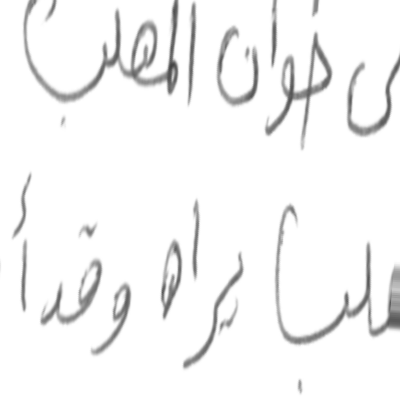 ى خوان المهلب
هلب يراه وقد أ